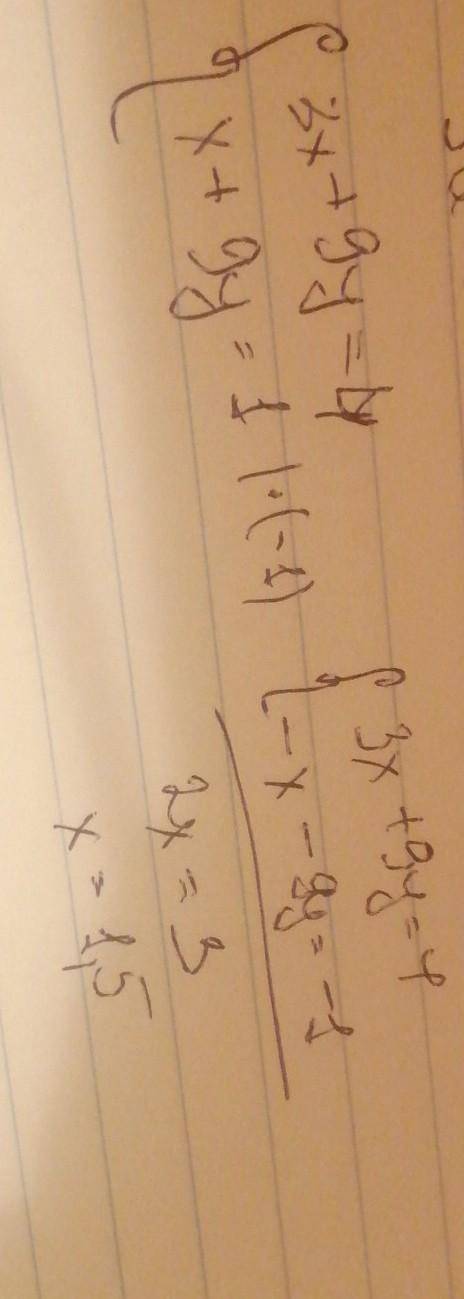 3x + 9y = 4
x + 9y = 1 | · (-1)
3x + 9y = 4
-x - 9y = -1
2x = 3
x = 1,5